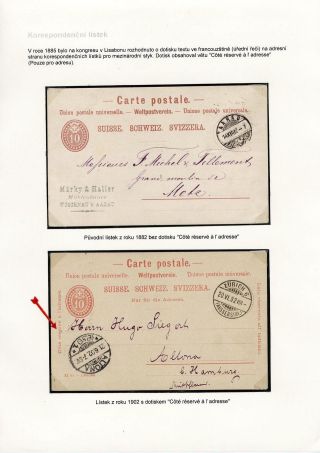 Korespondenční lístek
V roce 1885 bylo na kongresu v Lisabonu rozhodnuto o dotisku textu ve francouzštině (úřední řeči) na adresní
stranu korespondenčních lístků pro mezinárodní styk. Dotisk obsahoval větu "Côté réservé à l'adresse"
(Pouze pro adresu).
Carte postale.
Union postale universelle. — Weltpostverein. — Unione postale universale.
SUISSE. SCHWEIZ. SVIZZERA.
10
AARAU
Messieurs F. Michel
Grand moulin de
Märky & Haller
Původní lístek z roku 1882 bez dotisku "Côté réservé à l'adresse"
Carte postale.
Union postale universelle. — Weltpostverein. — Unione postale universale.
SUISSE. SCHWEIZ. SVIZZERA.
Nur für die Adresse.
10
ZÜRICH
Herrn Hugo Siegert
Altona
b. Hamburg
Lístek z roku 1902 s dotiskem "Côté réservé à l'adresse"